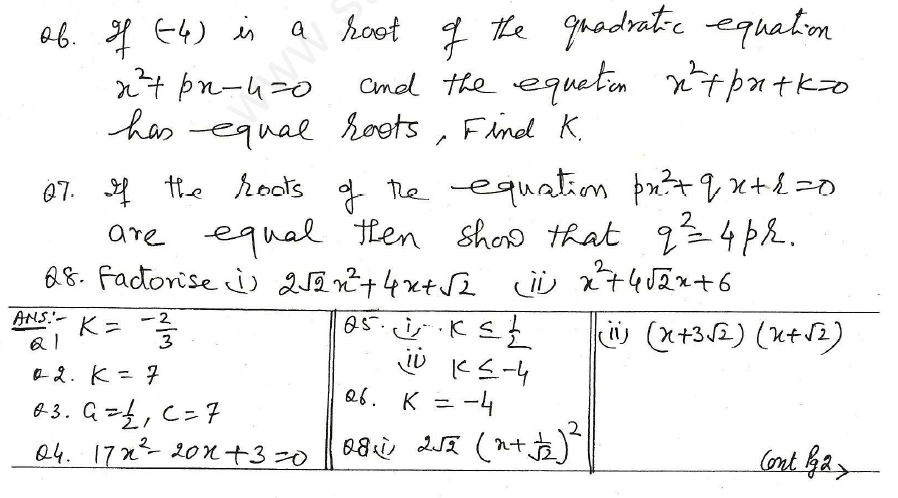 Q6. If (-4) is a root of the quadratic equation
x²+px-4=0 and the equation x²+px+K=0
has equal roots, Find K.
Q7. If the roots of the equation px²+qx+r=0
are equal then show that q²=4pr.
Q8. Factorise (i) 2√2x²+4x+√2 (ii) x²+4√2x+6
ANS:-
Q1 K = -2/3
Q2. K = 7
Q3. a=1/2, C=7
Q4. 17x²-20x+3=0
Q5. (i) K ≤ 1/2
(ii) K ≤ -4
Q6. K = -4
Q8(i) 2√2 (x+1/√2)²
(ii) (x+3√2) (x+√2)
Cont Pg2>